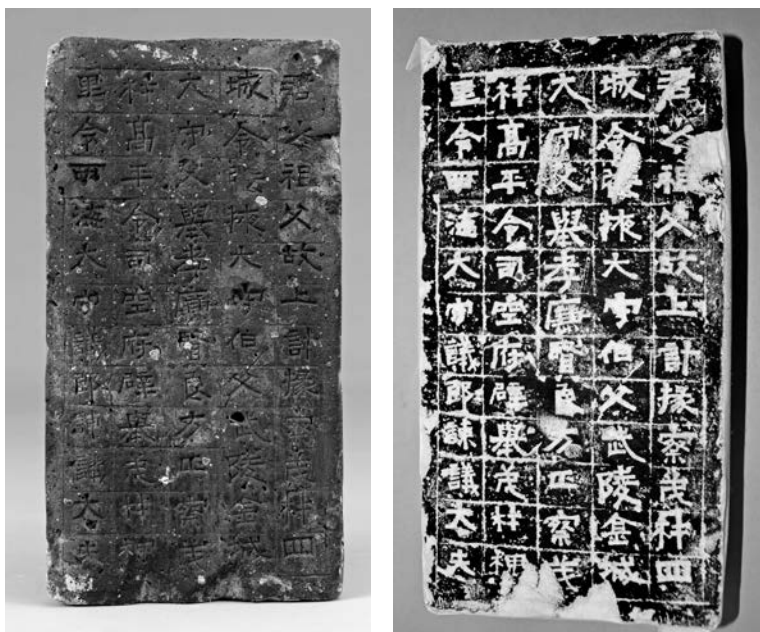 君祖父故上計掾察茂材四
城令張掖大守伯父武陵金城
大守父舉孝廉賢良方正察茂
材高平令司空府辟舉茂材
里令西海大守議郎諫議大夫
君祖父故上計掾察茂材四
城令張掖大守伯父武陵金城
大守父舉孝廉賢良方正察茂
材高平令司空府辟舉茂材
里令西海大守議郎諫議大夫